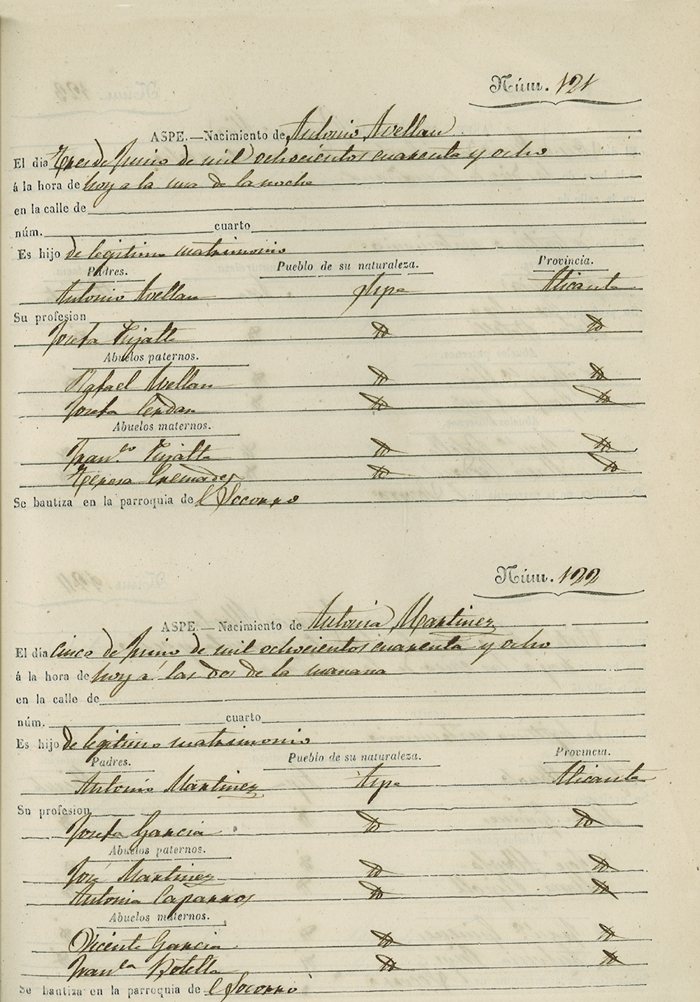 Núm. 121
ASPE.—Nacimiento de Antonio Avellan
El dia Tres de Junio de mil ochocientos cuarenta y ocho
á la hora de hoy a la una de la noche
en la calle de
núm. cuarto
Es hijo de legitimo matrimonio
Padres. Pueblo de su naturaleza. Provincia.
Antonio Avellan Aspe Alicante
Su profesion
Josefa
Abuelos paternos.
Rafael Avellan
Josefa Cerdan
Abuelos maternos.
Fran.co
Teresa Cremades
Se bautiza en la parroquia de el Socorro
Núm. 122
ASPE.—Nacimiento de Antonia Martinez
El dia cinco de Junio de mil ochocientos cuarenta y ocho
á la hora de hoy á las dos de la manana
en la calle de
núm. cuarto
Es hijo de legitimo matrimonio
Padres. Pueblo de su naturaleza. Provincia.
Antonio Martinez Aspe Alicante
Su profesion
Josefa Garcia
Abuelos paternos.
José Martinez
Antonia Caparros
Abuelos maternos.
Vicente Garcia
Fran.ca Botella
Se bautiza en la parroquia de el Socorro